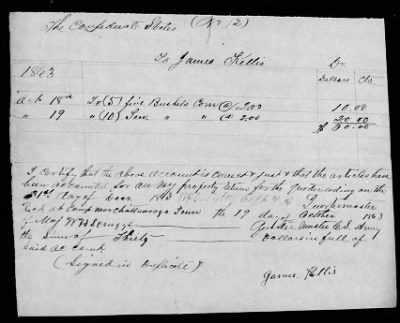 The Confederate States (No 2)
To James Kellis Dr.
1863 Dollars Cts
Oct 18th To (5) five Bushels Corn @ 2.00 10.00
" 19 " (10) Ten " " @ 2.00 20.00
$ 30.00
I certify that the above account is correct & just & that the articles have
been accounted for on my property return for the quarter ending on the
31st day of Decr 1863
Quartermaster
Recd at Camp near Chattanooga Tenn the 19 day of October 1863
of Maj Quarter Master C.S. Army
the sum of Thirty Dollars in full of
said account
(Signed in duplicate)
James Kellis